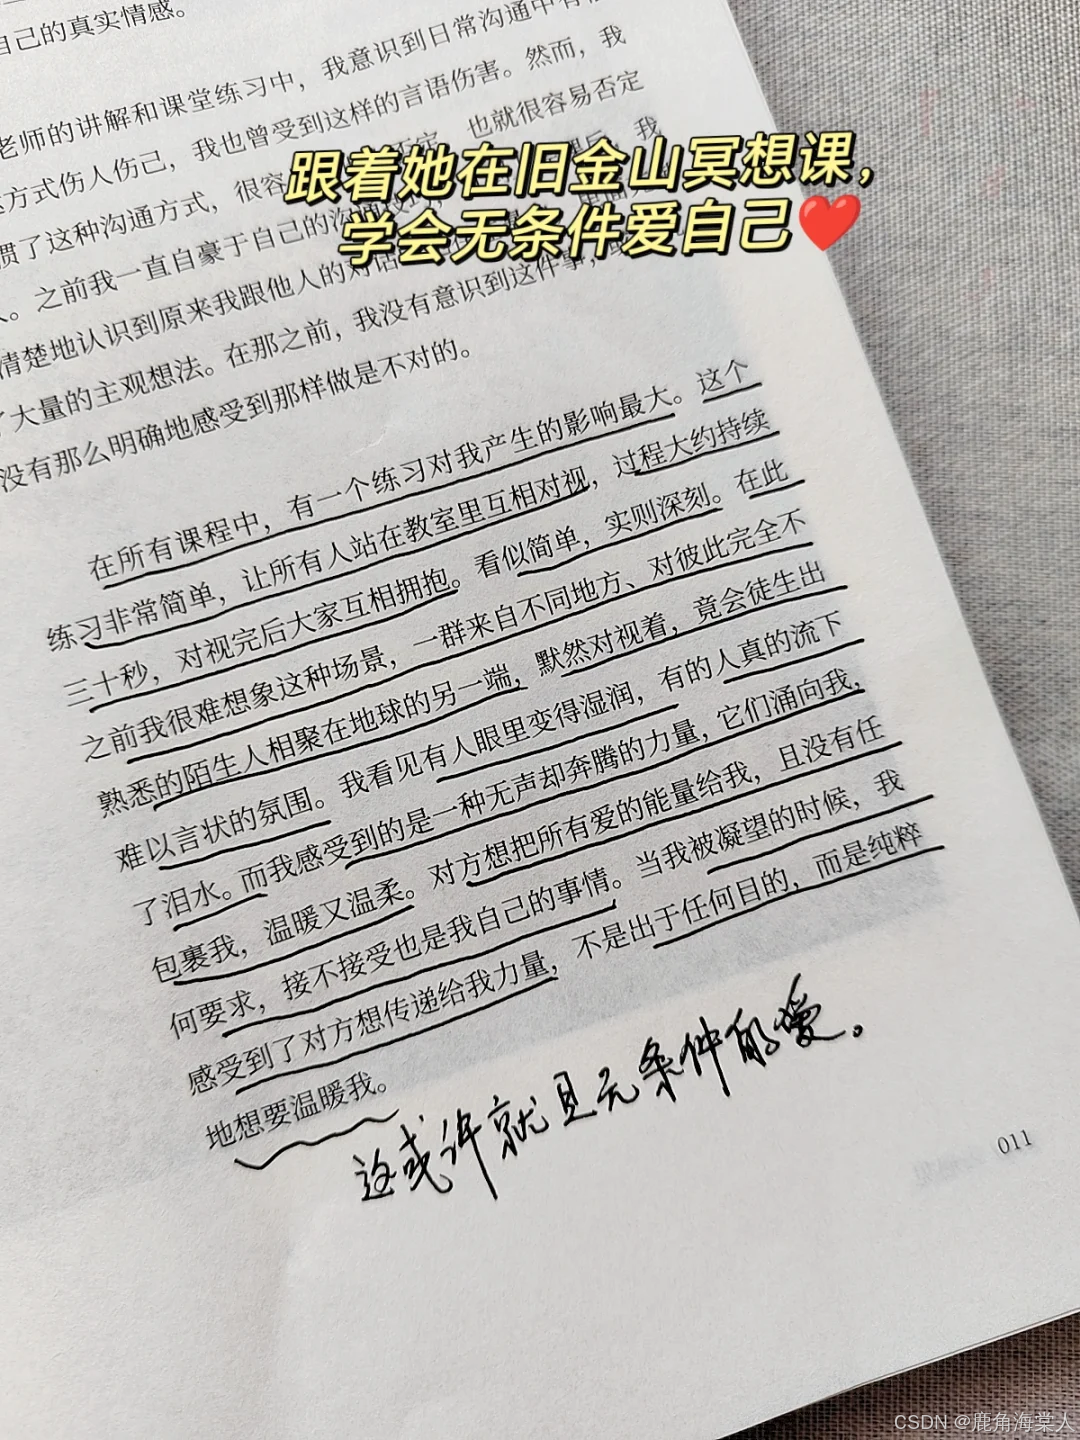 自己的真实情感。
老师的讲解和课堂练习中，我意识到日常沟通中有
方式伤人伤己，我也曾受到这样的言语伤害。然而，我
惯了这种沟通方式，很容 否定，也就很容易否定
人。之前我一直自豪于自己的沟通 后，我
清楚地认识到原来我跟他人的对话
了大量的主观想法。在那之前，我没有意识到这件事，
没有那么明确地感受到那样做是不对的。
跟着她在旧金山冥想课，
学会无条件爱自己❤️
在所有课程中，有一个练习对我产生的影响最大。这个
练习非常简单，让所有人站在教室里互相对视，过程大约持续
三十秒，对视完后大家互相拥抱。看似简单，实则深刻。在此
之前我很难想象这种场景，一群来自不同地方、对彼此完全不
熟悉的陌生人相聚在地球的另一端，默然对视着，竟会徒生出
难以言状的氛围。我看见有人眼里变得湿润，有的人真的流下
了泪水。而我感受到的是一种无声却奔腾的力量，它们涌向我，
包裹我，温暖又温柔。对方想把所有爱的能量给我，且没有任
何要求，接不接受也是我自己的事情。当我被凝望的时候，我
感受到了对方想传递给我力量，不是出于任何目的，而是纯粹
地想要温暖我。
这或许就是无条件的爱。
011
CSDN @鹿角海棠人